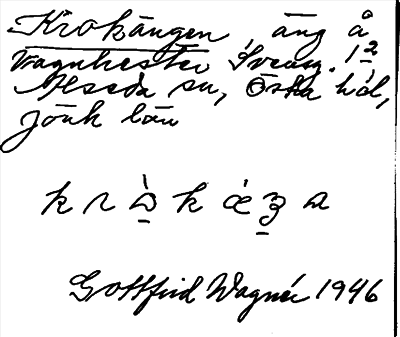 Krokängen, äng å
Vagnhester Svearyd. 1 2
Alseda sn, Östra hd,
Jönk län
k r ò̱ k ǽ ʒ̱ a
Gottfrid Wagnér 1946